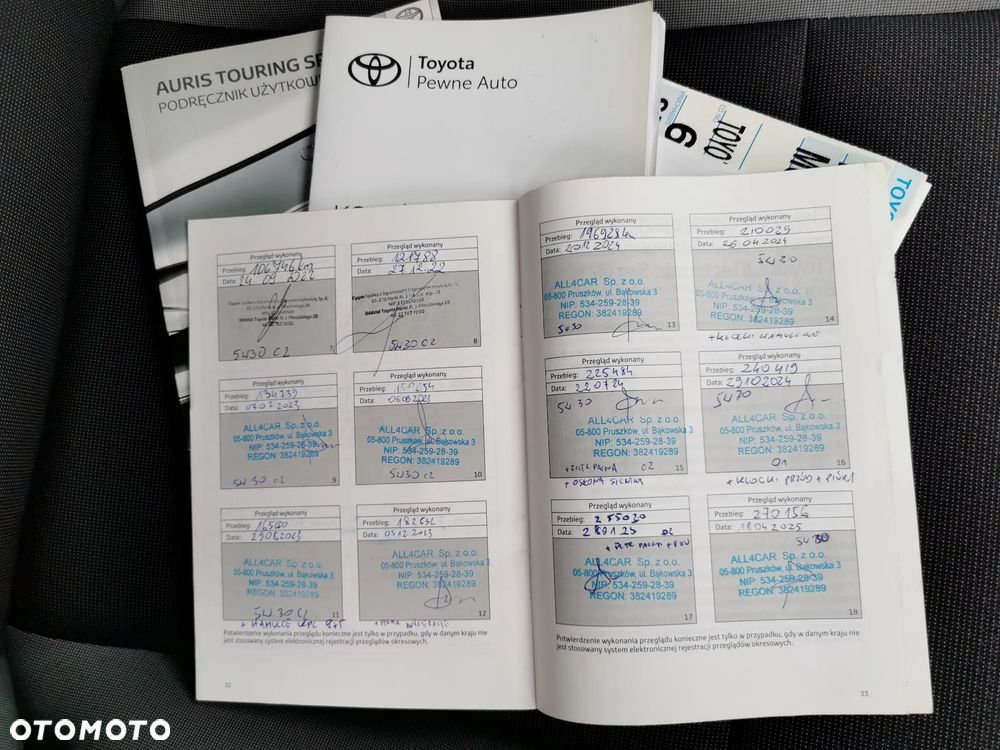 AURIS TOURING
PODRĘCZNIK UŻYTKOW
Toyota
Pewne Auto
6
TOYO
TOYO
Przegląd wykonany
Przebieg: 106746km
Data: 14 09 2022
Oddział Toyota Marki Al. J. Piłsudskiego 2B
5W30 C2
7
Przegląd wykonany
Przebieg: 121788
Data: 27.12.22
Oddział Toyota Marki Al. J. Piłsudskiego 2B
5W30 C2
8
Przegląd wykonany
Przebieg: 134739
Data: 07.03.2023
ALL4CAR Sp. z o.o.
05-800 Pruszków, ul. Bąkowska 3
NIP: 534-259-28-39
REGON: 382419289
5W30 C2
9
Przegląd wykonany
Przebieg:
Data: 06.06.2023
ALL4CAR Sp. z o.o.
05-800 Pruszków, ul. Bąkowska 3
NIP: 534-259-28-39
REGON: 382419289
5W30 C2
10
Przegląd wykonany
Przebieg:
Data:
ALL4CAR Sp. z o.o.
05-800 Pruszków, ul. Bąkowska 3
NIP: 534-259-28-39
REGON: 382419289
5W30 C2
11
+ HAMULCE KPL P+T
Przegląd wykonany
Przebieg:
Data: 05.12.2023
ALL4CAR Sp. z o.o.
05-800 Pruszków, ul. Bąkowska 3
NIP: 534-259-28-39
REGON: 382419289
12
Potwierdzenie wykonania przeglądu konieczne jest tylko w przypadku, gdy w danym kraju nie
jest stosowany system elektronicznej rejestracji przeglądów okresowych.
32
Przegląd wykonany
Przebieg: 196928
Data:
ALL4CAR Sp. z o.o.
05-800 Pruszków, ul. Bąkowska 3
NIP: 534-259-28-39
REGON: 382419289
5W30
13
Przegląd wykonany
Przebieg: 210029
Data: 26 04 2024
5W30
ALL4CAR Sp. z o.o.
05-800 Pruszków, ul. Bąkowska 3
NIP: 534-259-28-39
REGON: 382419289
14
+ KLOCKI HAMULCE
Przegląd wykonany
Przebieg: 225484
Data: 220724
5W30
ALL4CAR Sp. z o.o.
05-800 Pruszków, ul. Bąkowska 3
NIP: 534-259-28-39
REGON: 382419289
C2
15
+ OSŁONA SILNIKA
Przegląd wykonany
Przebieg: 240419
Data: 29102024
5W30
ALL4CAR Sp. z o.o.
05-800 Pruszków, ul. Bąkowska 3
NIP: 534-259-28-39
REGON: 382419289
16
+ KLOCKI PRZÓD +
Przegląd wykonany
Przebieg: 255030
Data: 280125 C2
ALL4CAR Sp. z o.o.
05-800 Pruszków, ul. Bąkowska 3
NIP: 534-259-28-39
REGON: 382419289
17
Przegląd wykonany
Przebieg: 270156
Data: 18.04.2025
5W30
ALL4CAR Sp. z o.o.
05-800 Pruszków, ul. Bąkowska 3
NIP: 534-259-28-39
REGON: 382419289
18
Potwierdzenie wykonania przeglądu konieczne jest tylko w przypadku, gdy w danym kraju nie
jest stosowany system elektronicznej rejestracji przeglądów okresowych.
33
OTOMOTO